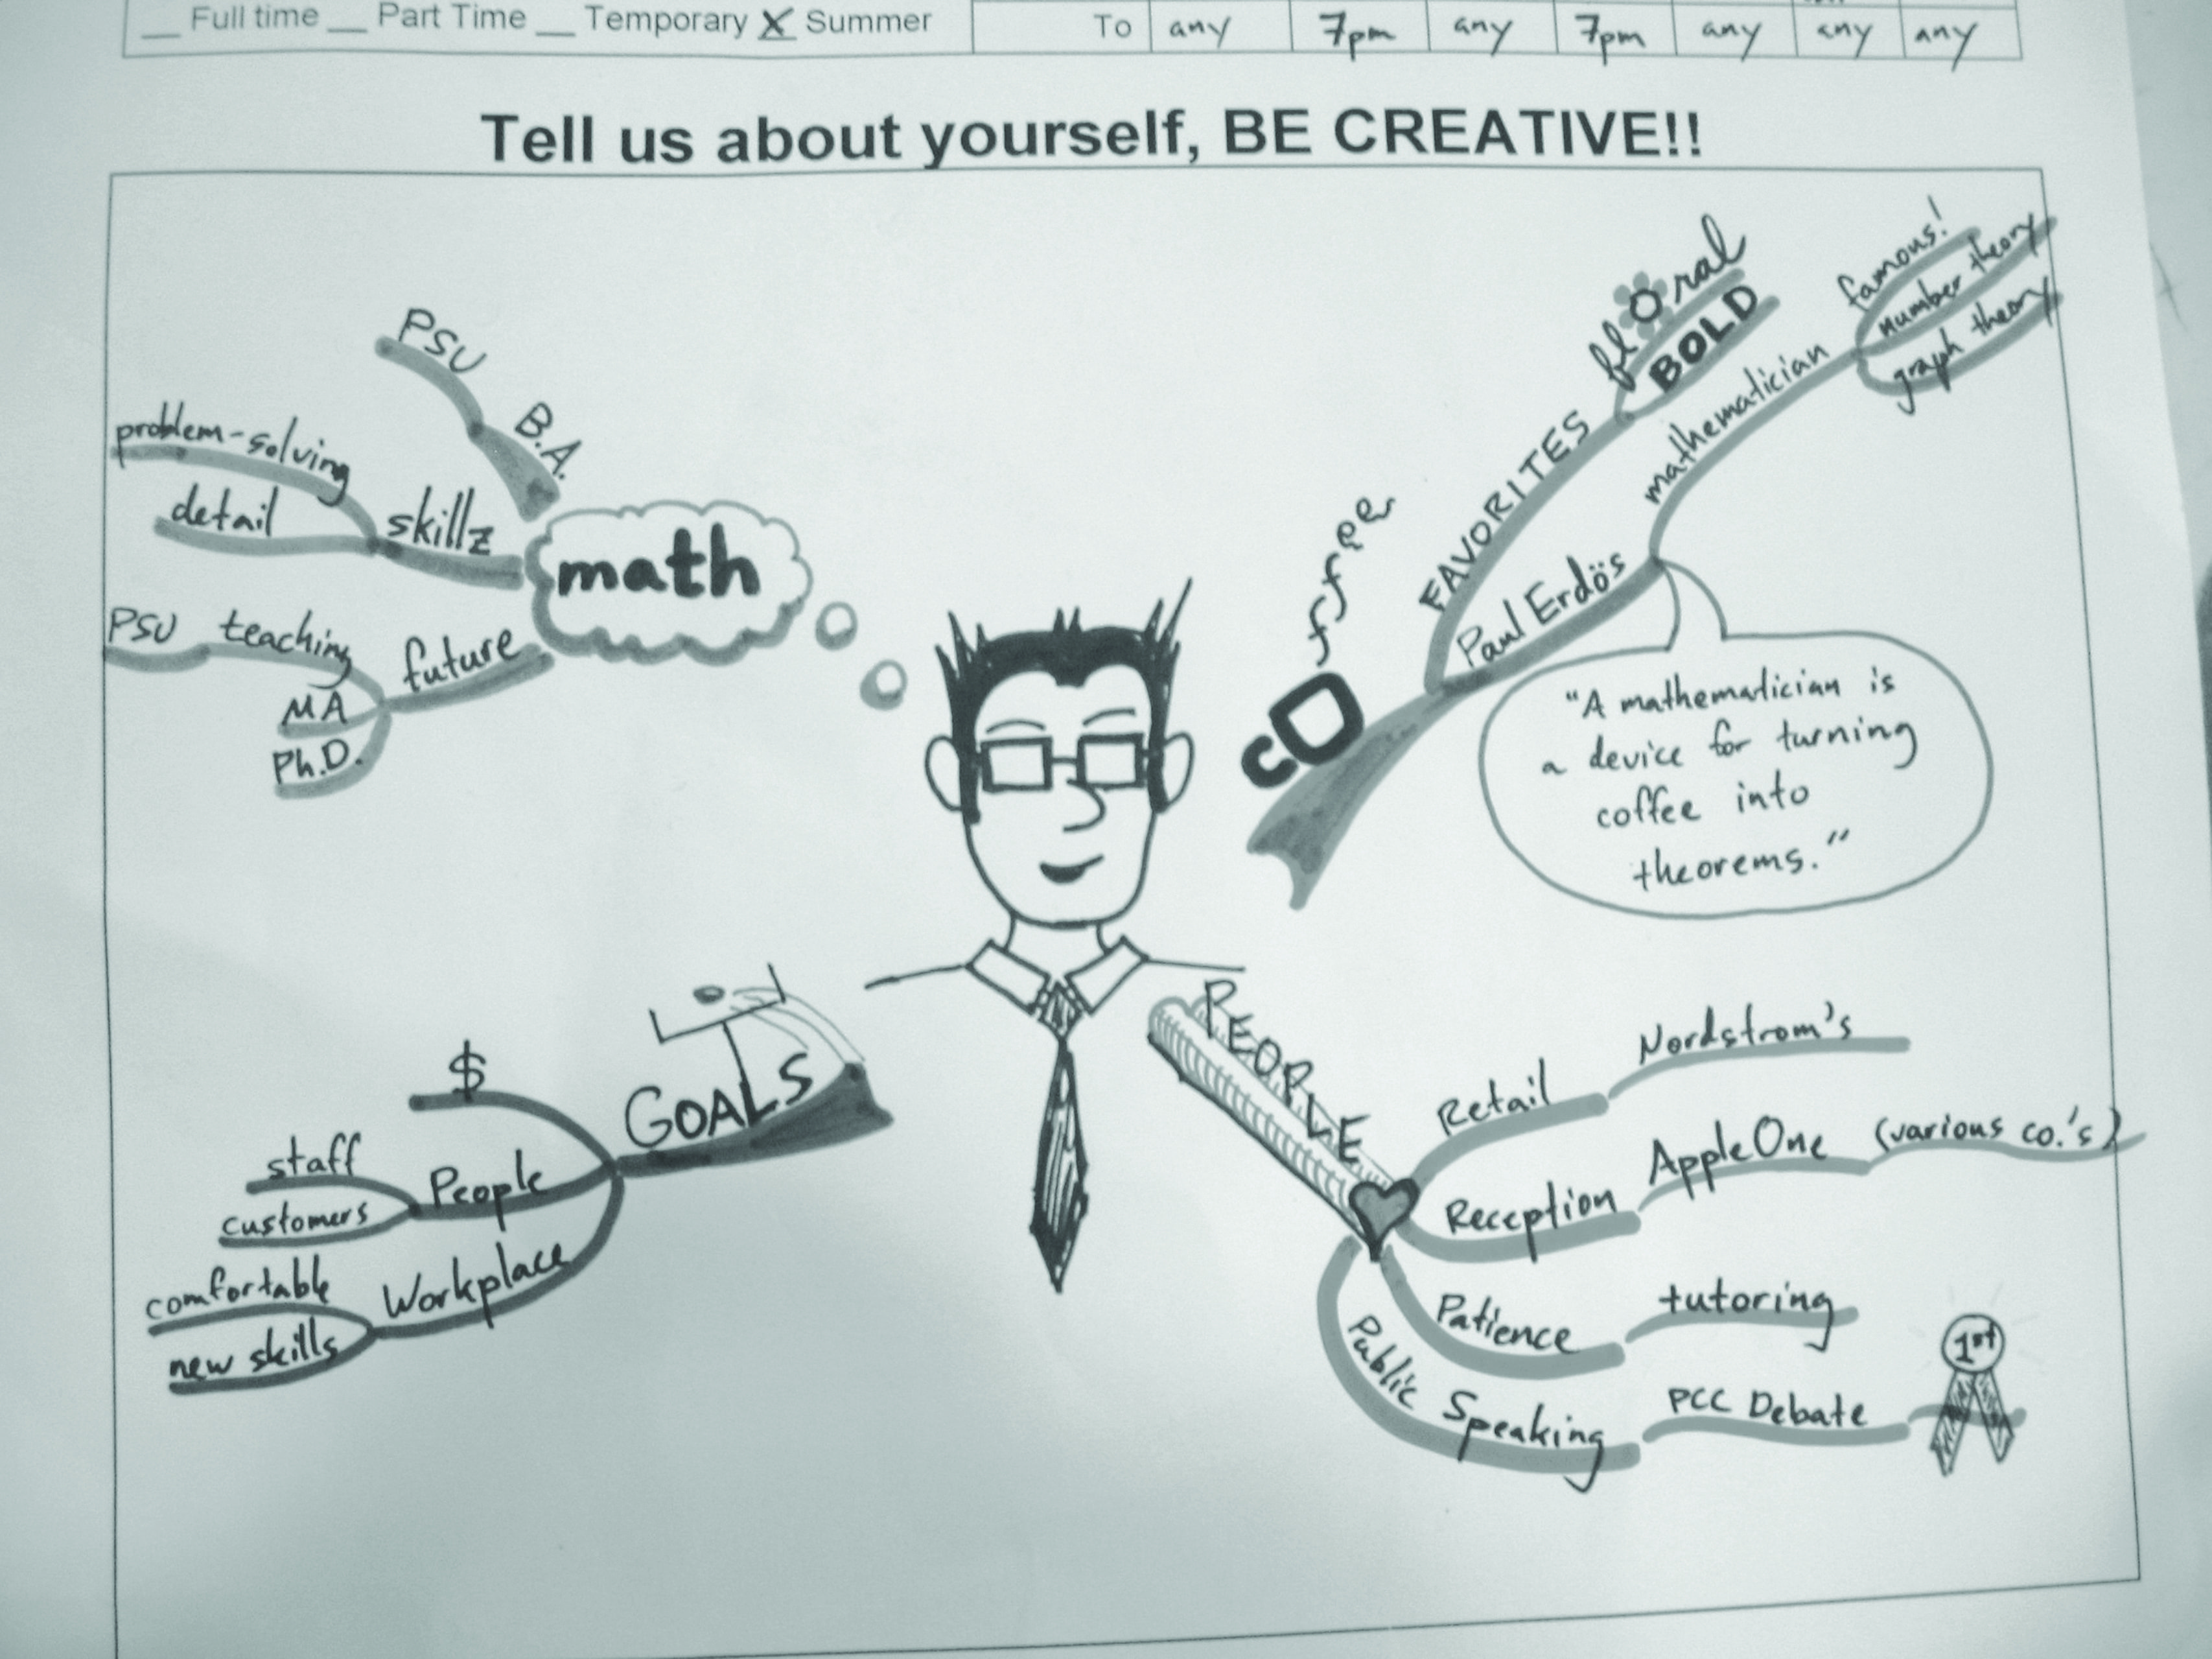 __ Full time __ Part Time __ Temporary X Summer
To any 7pm any 7pm any any any
Tell us about yourself, BE CREATIVE!!
math
B.A.
PSU
skillz
problem-solving
detail
future
teaching
PSU
MA
Ph.D.
coffee
FAVORITES
floral
BOLD
Paul Erdös
mathematician
famous!
number theory
graph theory
"A mathematician is
a device for turning
coffee into
theorems."
GOALS
$
People
staff
customers
Workplace
comfortable
new skills
PEOPLE
Retail Nordstrom's
Reception AppleOne (various co.'s)
Patience tutoring
Public Speaking PCC Debate 1st